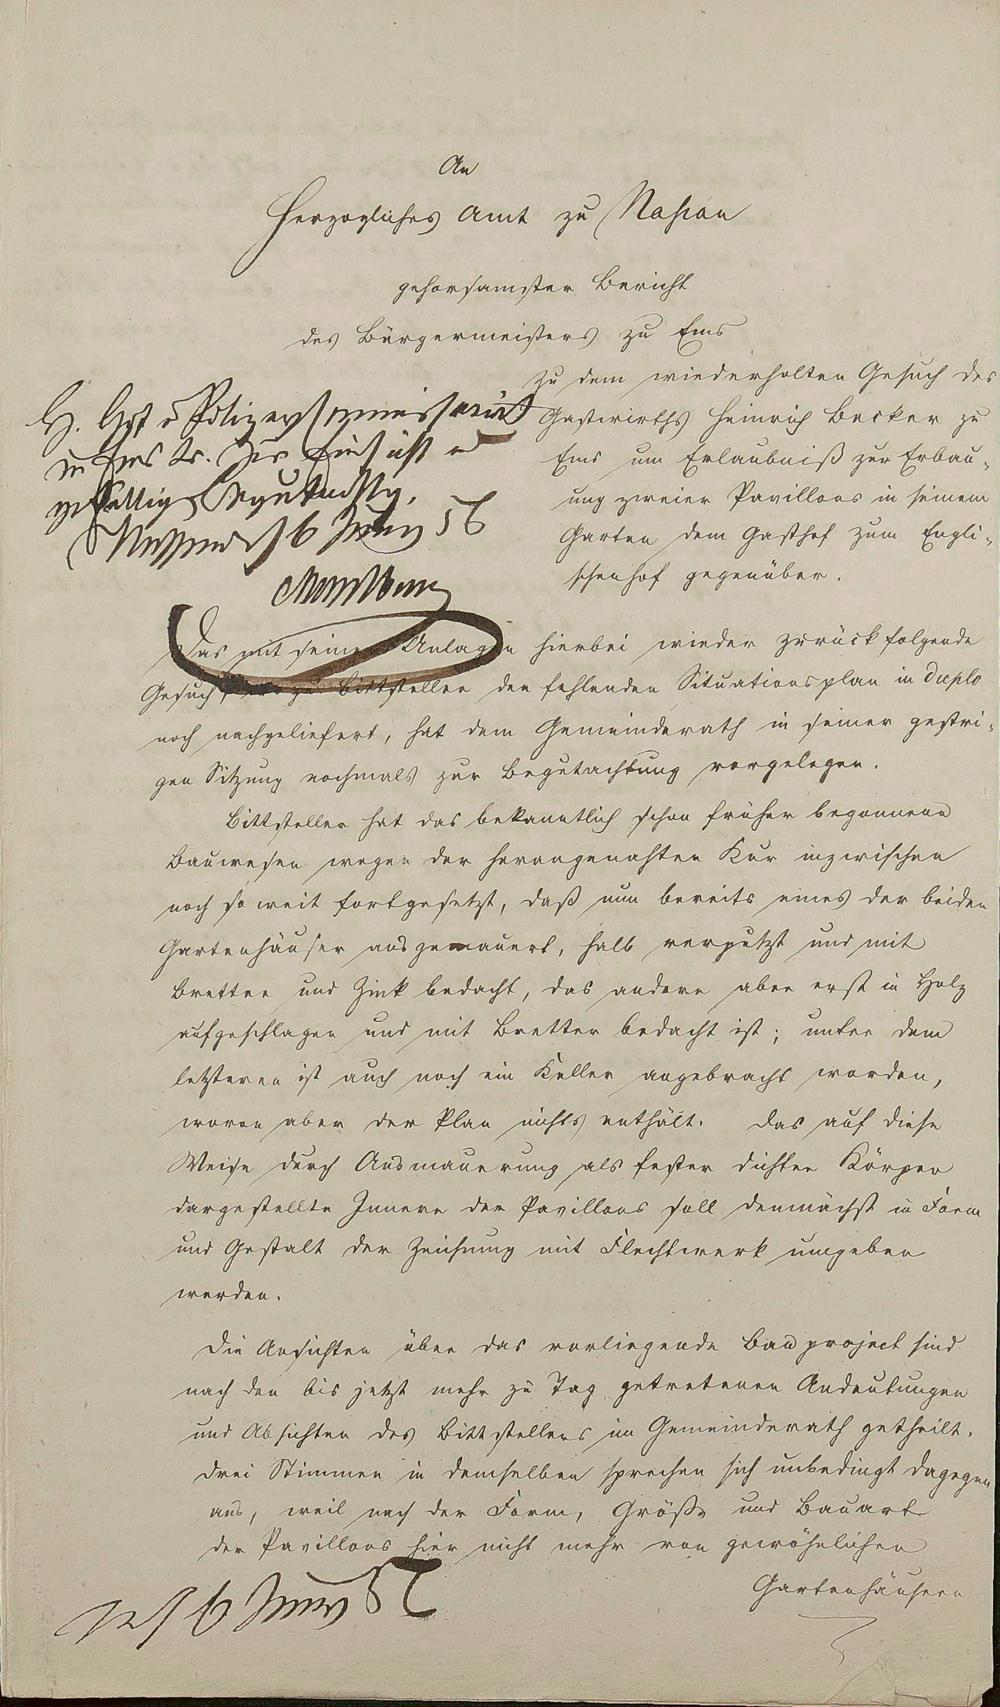 An
Herzogliches Amt zu Nassau
gehorsamster Bericht
des Bürgermeisters zu Ems
zu dem wiederholten Gesuch des
Gastwirths Heinrich Becker zu
Ems um Erlaubniß zur Erbau-
ung zweier Pavillons in seinem
Garten dem Gasthof zum Engli-
schenhof gegenüber.
H. Polizeycommissariat
in Ems zur Einsicht u
gefälligen Begutachtung.
Nassau 6 Juny 56
Das mit seinen Anlagen hierbei wieder zurückfolgende
Gesuch zu Bittsteller den fehlenden Situationsplan in duplo
noch nachgeliefert, hat dem Gemeinderath in seiner gestri-
gen Sitzung nochmals zur Begutachtung vorgelegen.
Bittsteller hat das bekanntlich schon früher begonnene
Bauwesen wegen der herangenahten Kur inzwischen
noch so weit fortgesetzt, daß nun bereits eines der beiden
Gartenhäuser ausgemauert, halb verputzt und mit
Bretter und Zink bedacht, das andere aber erst in Holz
aufgeschlagen und mit Bretter bedacht ist; unter dem
letzteren ist auch noch ein Keller angebracht worden,
wovon aber der Plan nichts enthält. Das auf diese
Weise durch Ausmauerung als fester dichter Körper
dargestellte Innere der Pavillons soll demnächst in Form
und Gestalt der Zeichnung mit Flechtwerk umgeben
werden.
Die Ansichten über das vorliegende Bauproject sind
nach den bis jetzt mehr zu Tag getretenen Andeutungen
und Absichten des Bittstellers im Gemeinderath getheilt.
Drei Stimmen in demselben sprechen sich unbedingt dagegen
aus, weil nach der Form, Größe und Bauart
der Pavillons hier nicht mehr von gewöhnlichen
Gartenhäusern
6 Juny 56